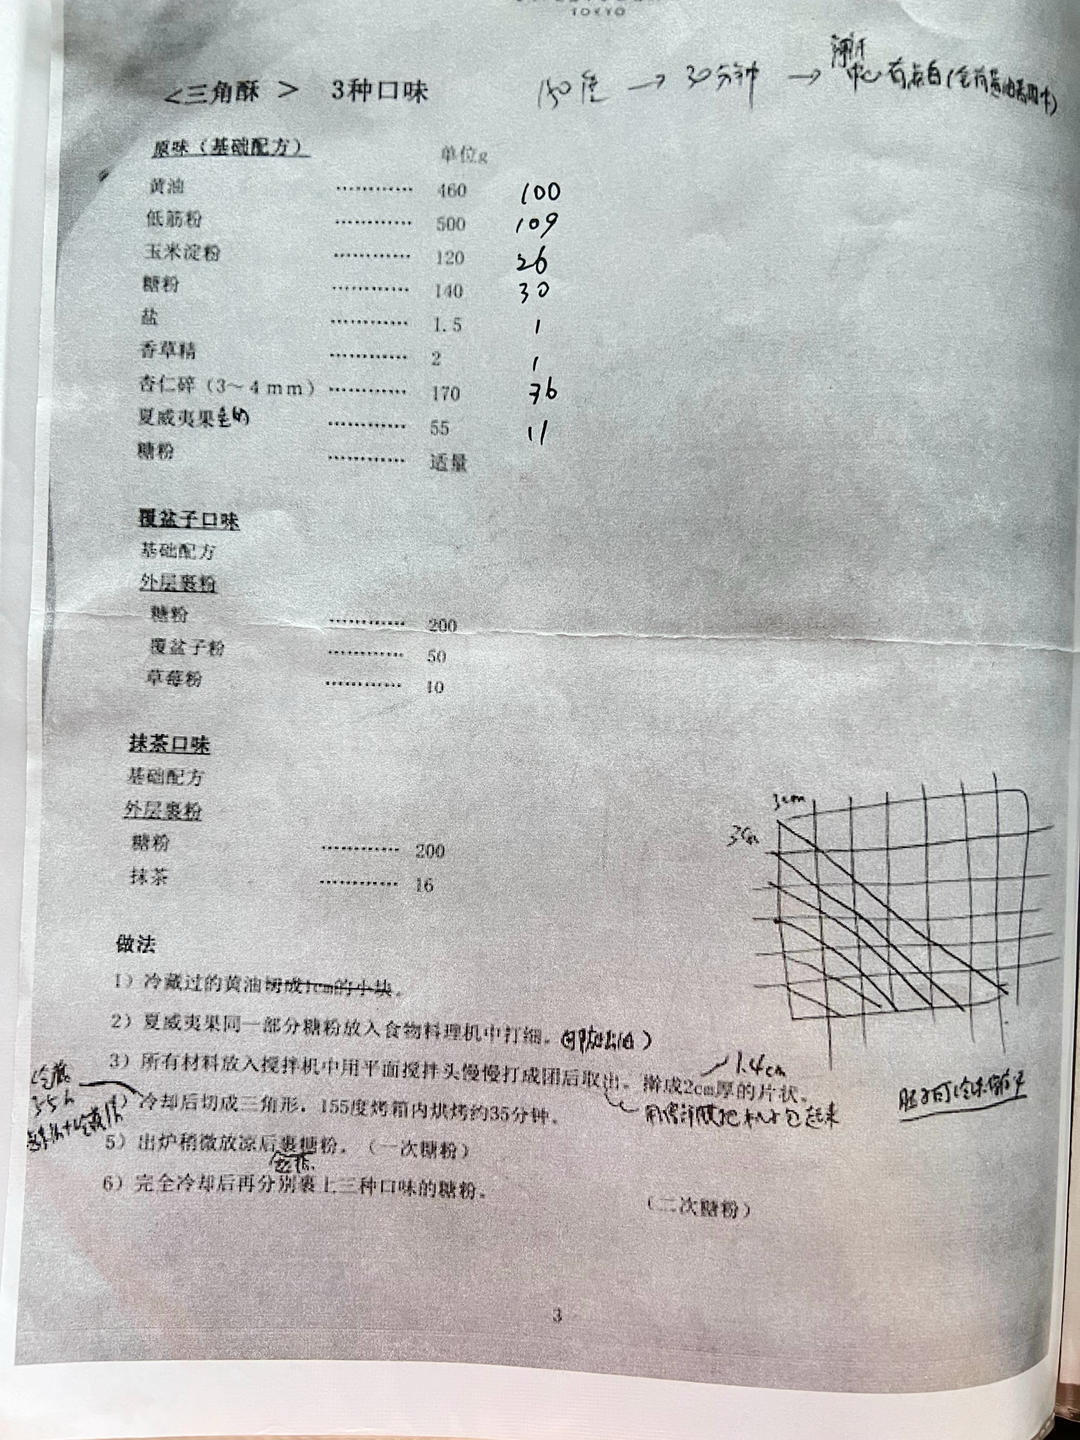 TOKYO
<三角酥> 3种口味
150度 → 30分钟 →
原味（基础配方） 单位g
黄油 ………… 460 100
低筋粉 ………… 500 109
玉米淀粉 ………… 120 26
糖粉 ………… 140 30
盐 ………… 1.5 1
香草精 ………… 2 1
杏仁碎（3~4mm） ………… 170 36
夏威夷果 ………… 55 11
糖粉 ………… 适量
覆盆子口味
基础配方
外层裹粉
糖粉 ………… 200
覆盆子粉 ………… 50
草莓粉 ………… 10
抹茶口味
基础配方
外层裹粉
糖粉 ………… 200
抹茶 ………… 16
3cm
3cm
做法
1）冷藏过的黄油切成1cm的小块。
2）夏威夷果同一部分糖粉放入食物料理机中打细。
3）所有材料放入搅拌机中用平面搅拌头慢慢打成团后取出。擀成2cm厚的片状。
1.4cm
4）冷却后切成三角形，155度烤箱内烘烤约35分钟。
5）出炉稍微放凉后裹糖粉。（一次糖粉）
6）完全冷却后再分别裹上三种口味的糖粉。
（二次糖粉）
3